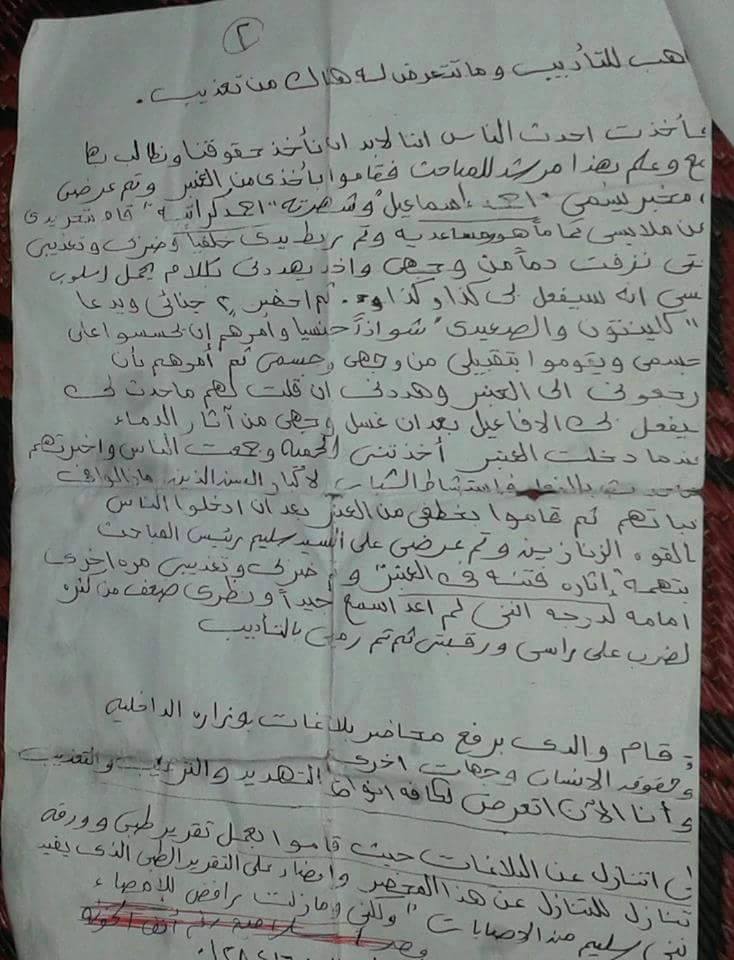 ٢
هب للتأديب وما تتعرض له هناك من تعذيب .
أخذت احدث الناس اننا لابد ان نأخذ حقوقنا ونطالب بها
وعلم بهذا مرشد للمباحث فقاموا بأخذى من العنبر وتم عرضى
مخبر يسمى "احمد إسماعيل" وشهرته "احمد كراتيه" قام بتجريدى
من ملابسى تماماً هو ومساعديه وتم ربط يدى خلفياً وضربى وتعذيبى
تى نزفت دماً من وجهى واخذ يهددنى بكلام يحمل اسلوب
سى انه سيفعل بى كذا وكذا. ثم احضر ٢ جنائى ويدعا
"كلينتون والصعيدى" شواذاً جنسيا وامرهم ان يحسسوا على
جسمى ويقوموا بتقبيلى من وجهى وجسمى ثم أمرهم بأن
رجعونى الى العنبر وهددنى ان قلت لهم ماحدث لى
يفعل بى الافاعيل بعد ان غسل وجهى من آثار الدماء
عندما دخلت العنبر أخذتنى الحميه وجمعت الناس واخبرتهم
فاستشاط الشباب
ثم قاموا بخطفى من العنبر بعد ان ادخلوا الناس
بالقوه الزنازين وتم عرضى على السيد سليم رئيس المباحث
بتهمة "إثاره فتنه فى العنبر" وتم ضربى وتعذيبى مره اخرى
امامه لدرجه اننى لم اعد اسمع جيداً ونظرى ضعف من كثره
لضرب على راسى ورقبتى ثم تم رميى بالتأديب
قام والدى برفع محاضر بلاغات بوزاره الداخليه
وحقوق الانسان وجهات اخرى
وأنا الآن اتعرض لكافه انواع التهديد والترهيب والتعذيب
اتنازل عن البلاغات حيث قاموا بعمل تقرير طبى وورقه
تنازل للتنازل عن هذا المحضر وامضاء على التقرير الطبى الذى يفيد
ننى سليم من الاصابات" ولكنى ومازلت برافض للإمضاء